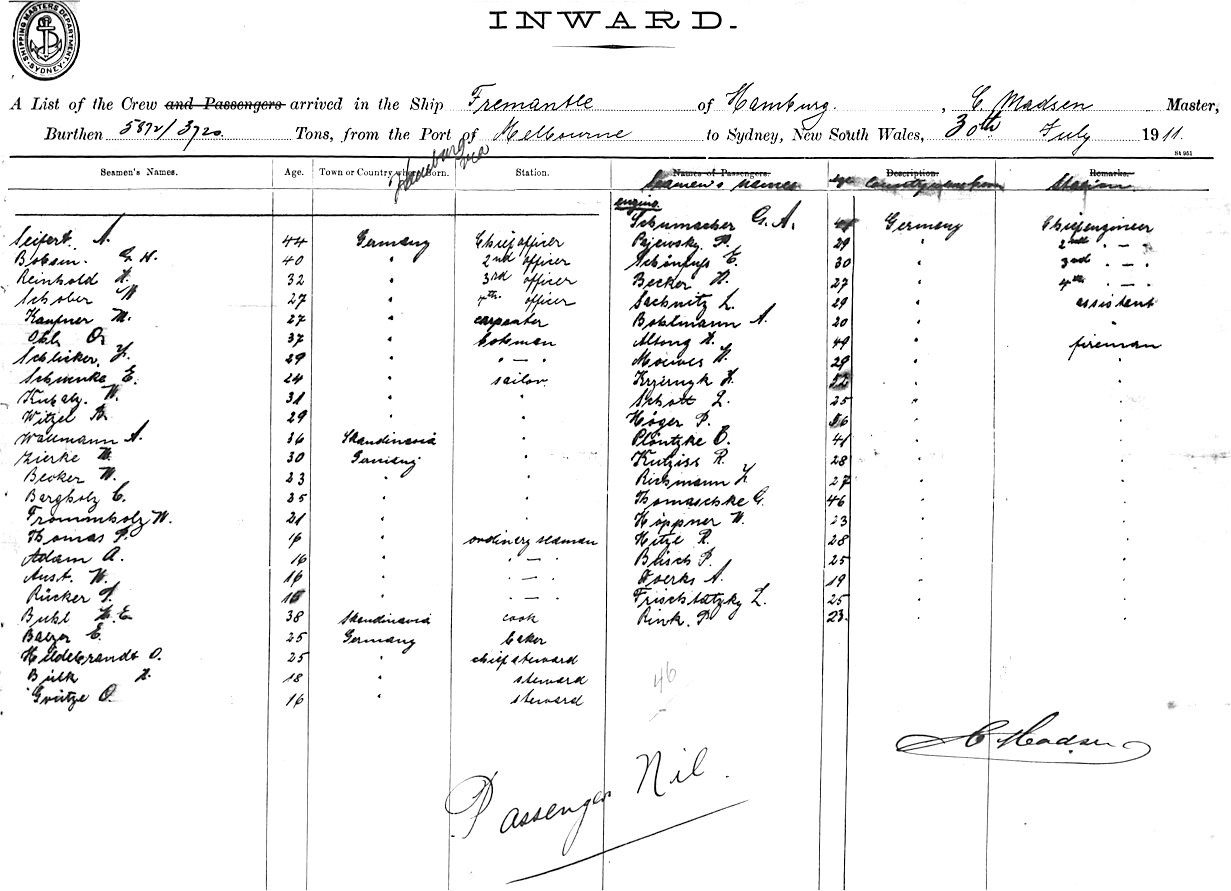 SHIPPING MASTERS DEPARTMENT SYDNEY
INWARD.
A List of the Crew and Passengers arrived in the Ship Fremantle of Hamburg, C. Madsen Master,
Burthen 5872/3720 Tons, from the Port of Melbourne to Sydney, New South Wales, 30th July 1911.
Hamburg via
St 951
Seamen's Names. Age. Town or Country where Born. Station.
Seifert. A. 44 Germany Chief officer
Boksen. G. H. 40 " 2nd officer
Reinhold H. 32 " 3rd officer
Schober W 27 " 4th officer
Kaufner M. 27 " carpenter
O. 37 " botsman
Schlicker. 29 " " — "
Schwenke E. 24 " sailor.
W. 31 " "
Witzel B. 29 " "
Wallmann A. 36 Skandinavia "
Zierke W. 30 Germany "
Becker W. 23 " "
Bergholz C. 25 " "
Frommholz W. 21 " "
Thomas P. 16 " ordinery seaman
Adam A. 16 " " — "
Aust. W. 16 " " — "
Rücker 15 " " — "
Buhl H. E. 38 Skandinavia cook
Balzer E. 25 Germany baker
Hildebrandt O. 25 " chief steward
Bülk H. 18 " steward
O. 16 " steward
Names of Passengers. Description. Remarks.
Seamen's names Age Country where born Station
engine
Schumacher G. A. 41 Germany Chief engineer
29 " 2nd " — "
E. 30 " 3rd " — "
Becker H. 27 " 4th " — "
Sachnitz L. 29 " assistent
Bohlmann A. 20 " "
49 " fireman
Moewes H. 29 " "
22 " "
Schott L. 25 " "
Höger P. "
Plöntzke O. 41 " "
Kutziss R. 28 " "
Richmann 27 " "
Thomaschke G. 46 " "
Höppner W. 23 " "
Hitze R. 28 " "
Büsch P. 25 " "
A. 19 " "
Frischbatzky L. 25 " "
Rink. P 23. " "
46
C Madsen
Passenger Nil.